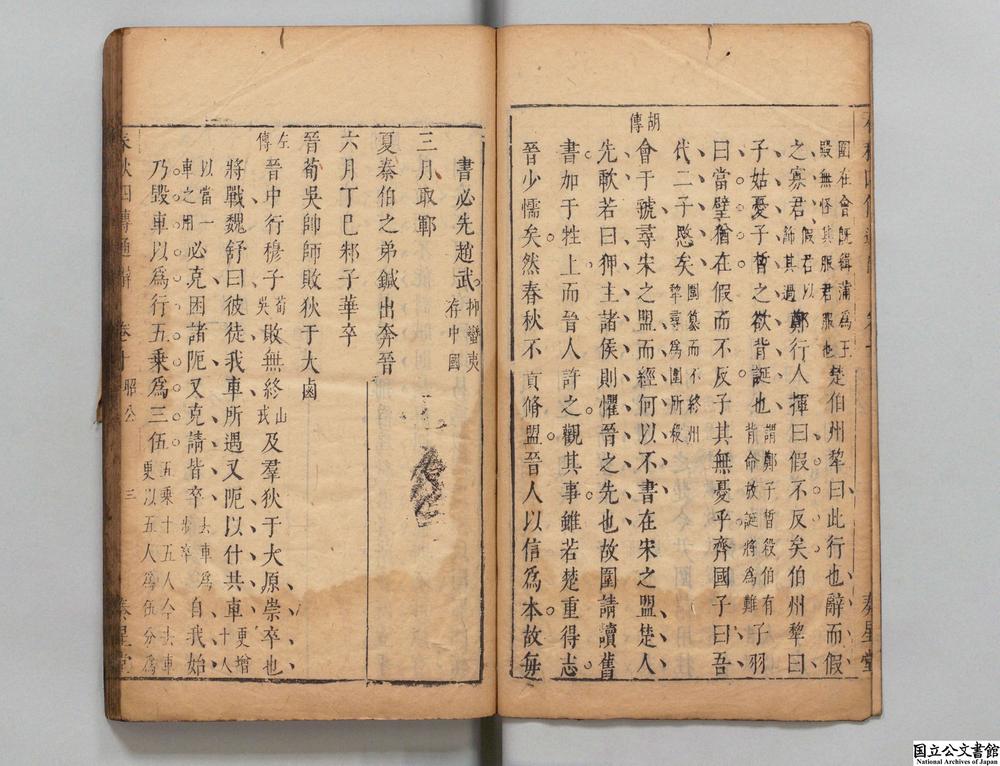 圍在會既緝蒲為王殿無怪其服君服也楚伯州犁曰此行也辭而假
之寡君假君以飾其過鄭行人揮曰假不反矣伯州犁曰
子姑憂子皙之欲背誕也謂鄭子皙殺伯有背命放誕將為難子羽
曰當璧猶在假而不反子其無憂乎齊國子曰吾
代二子愍矣圍簒而不終州犁尋為圍所殺
胡傳
會于虢尋宋之盟而經何以不書在宋之盟楚人
先歃若曰狎主諸侯則懼晉之先也故圍請讀舊
書加于牲上而晉人許之觀其事雖若楚重得志
晉少懦矣然春秋不貴脩盟晉人以信為本故每
書必先趙武抑蠻夷存中國
三月取鄆
夏秦伯之弟鍼出奔晉
六月丁巳邾子華卒
晉荀吳帥師敗狄于大鹵
左傳
晉中行穆子荀吳敗無終山戎及羣狄于大原崇卒也
將戰魏舒曰彼徒我車所遇又阨以什共車更增十人
以當一車之用必克困諸阨又克請皆卒去車為步卒自我始
乃毀車以為行五乘為三伍五乘十五人今去車更以五人為伍分為
春秋四傳通辭 卷十 昭公 三 奏星堂
国立公文書館
National Archives of Japan